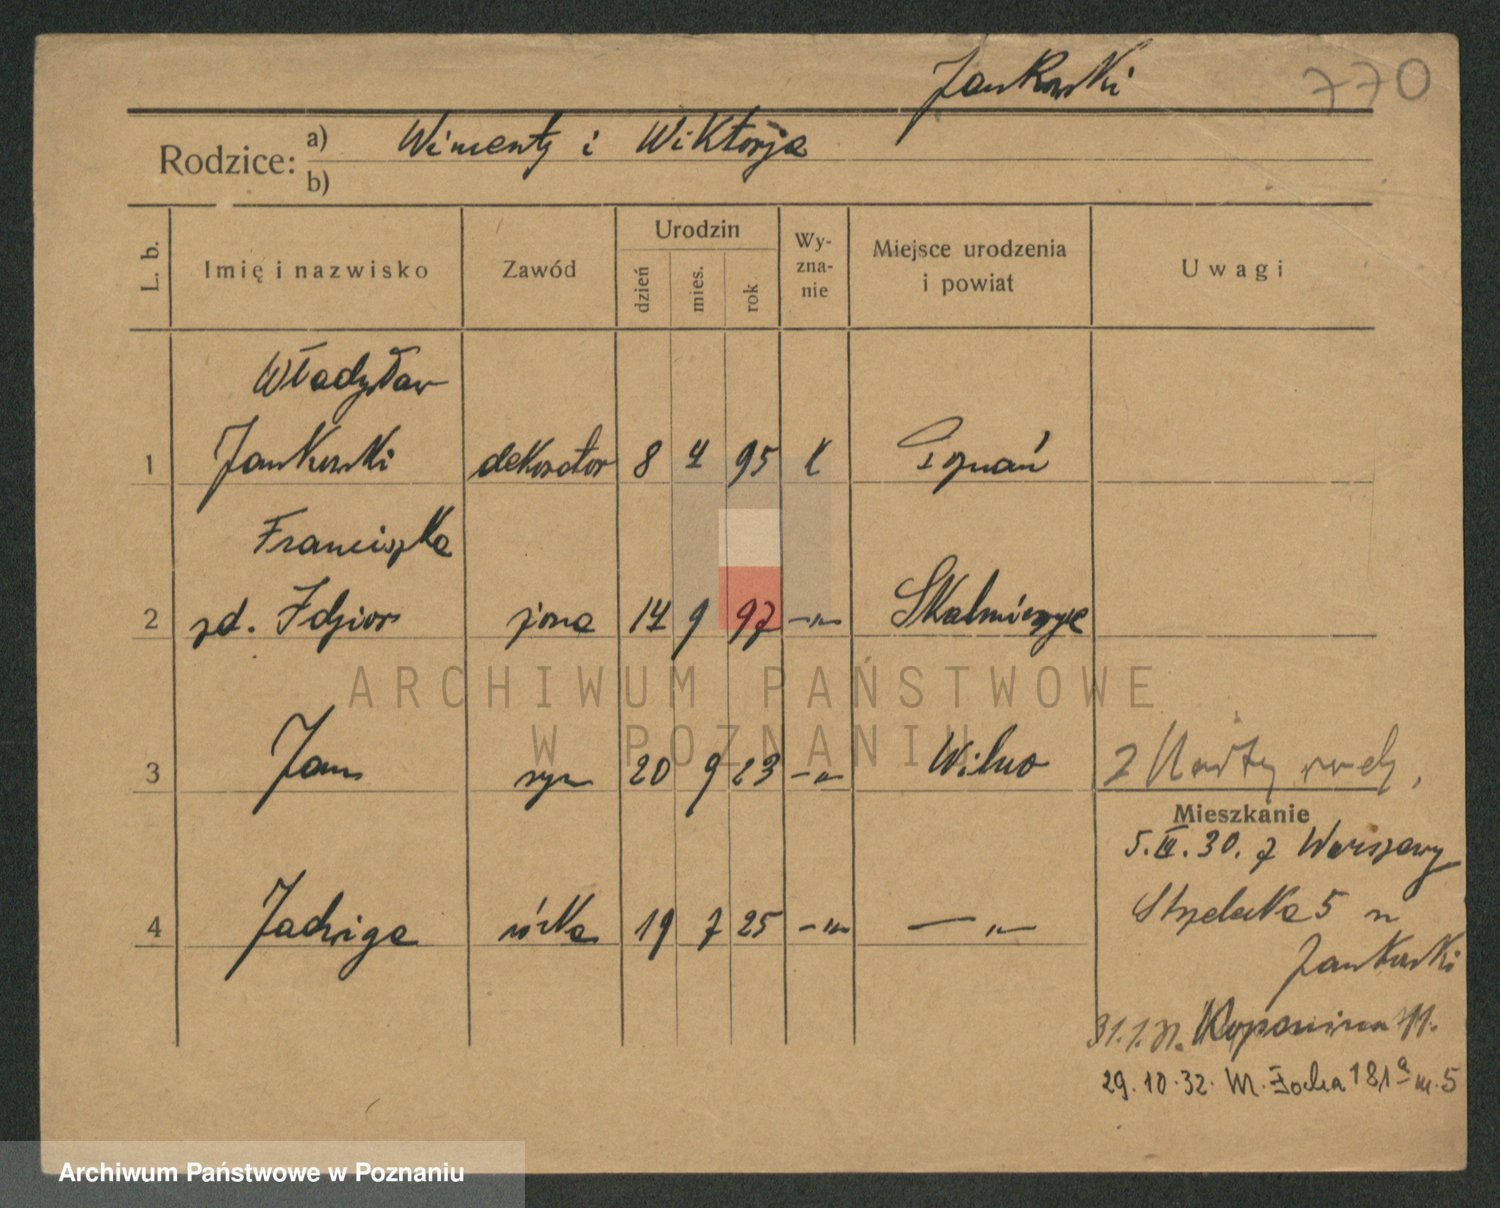 Jankowski
770
Rodzice: a) Wincenty i Wiktorja
b)
L. b.
Imię i nazwisko
Zawód
Urodzin
dzień
mies.
rok
Wy-
zna-
nie
Miejsce urodzenia
i powiat
Uwagi
Władysław
1 Jankowski dekorator 8 4 95 k Poznań
Franciszka
2 zd. Idzior żona 14 9 97 -„- Skalmierzyce
3 Jan syn 20 9 23 -„- Wilno Z Karty
Mieszkanie
5. 30. z Warszawy
4 Jadwiga córka 19 7 25 -„- -„- Strzelecka 5 u
Jankowski
31.1.31. 11.
29.10.32. M. Focha 181a m. 5
ARCHIWUM PAŃSTWOWE
W POZNANIU
Archiwum Państwowe w Poznaniu